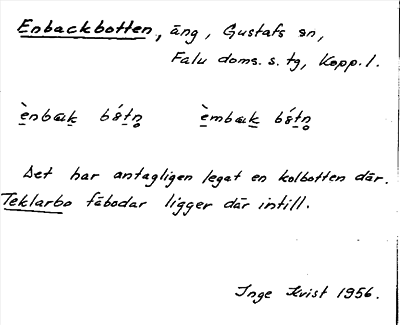 Enbackbotten, äng, Gustafs sn,
Falu doms. s. tg, Kopp. l.
è̱nbæḵ bó̱tn̥ è̱mbæḵ bó̱tn̥
Det har antagligen legat en kolbotten där.
Teklarbo fäbodar ligger där intill.
Inge Kvist 1956.